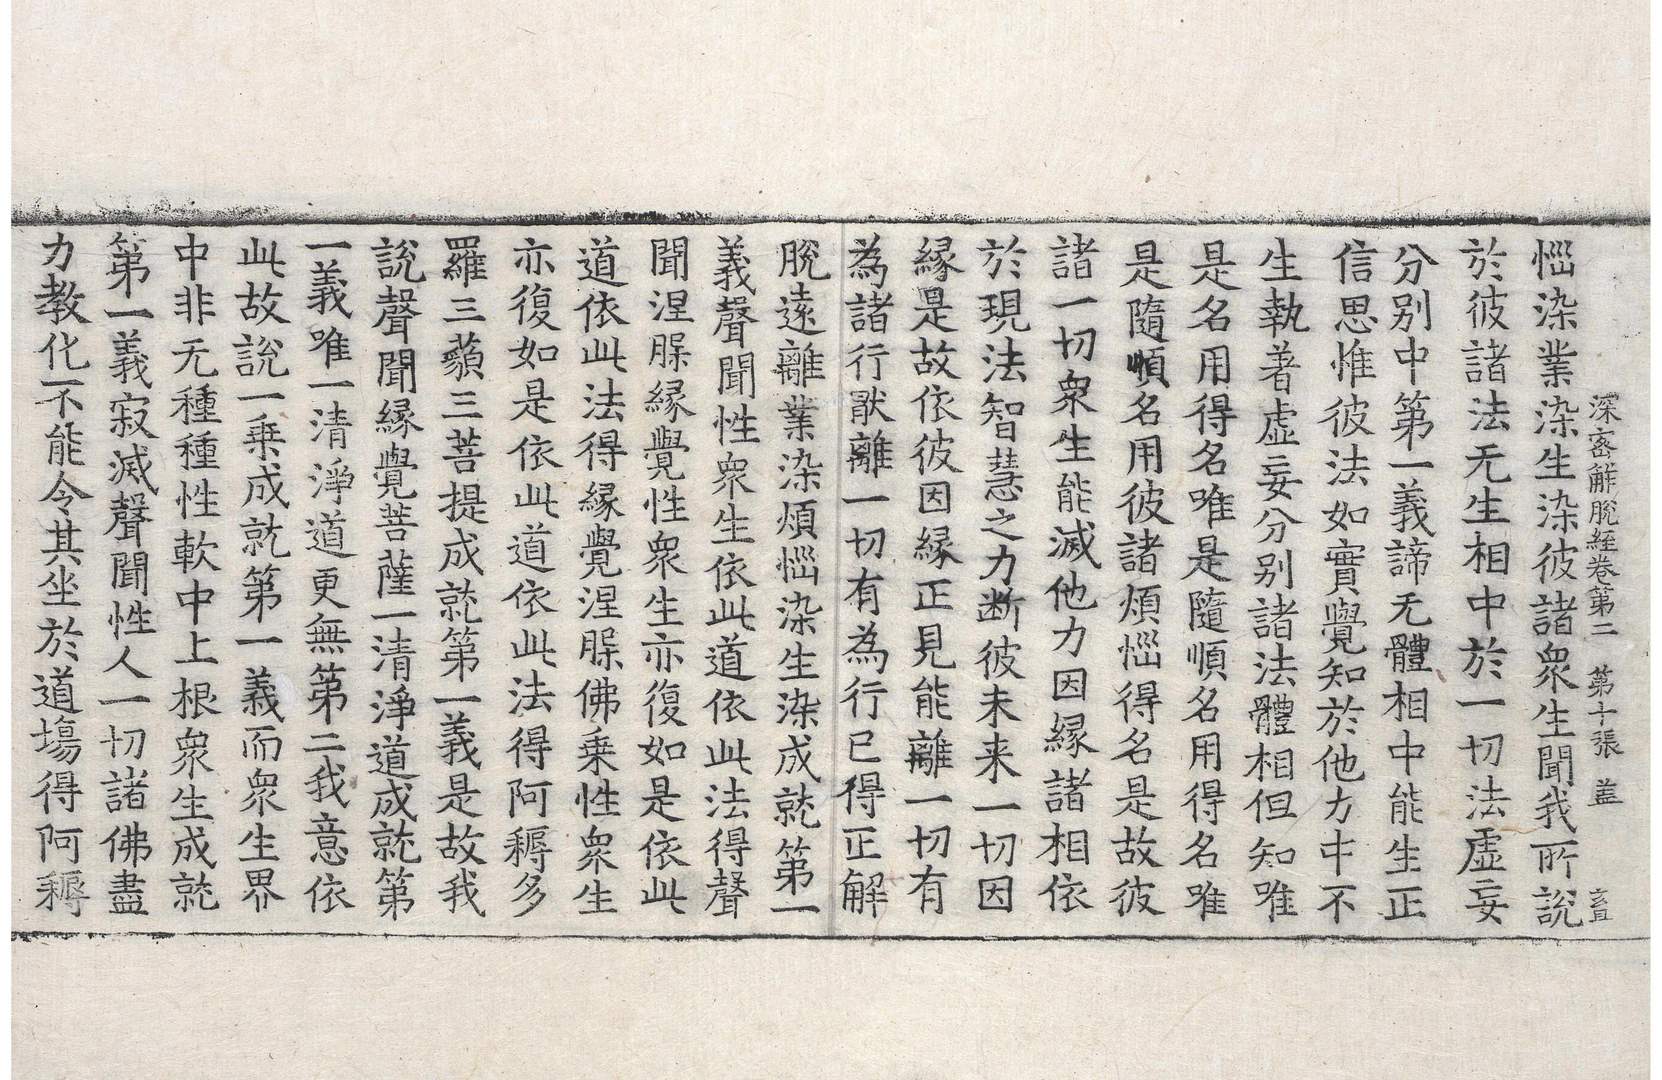 深密解脫經卷第二 第十張 盖
惱染業染生染彼諸衆生聞我所說
於彼諸法无生相中於一切法虛妄
分別中第一義諦无體相中能生正
信思惟彼法如實覺知於他力中不
生執著虛妄分別諸法體相但知唯
是名用得名唯是隨順名用得名唯
是隨順名用彼諸煩惱得名是故彼
諸一切衆生能滅他力因緣諸相依
於現法智慧之力断彼未来一切因
緣是故依彼因緣正見能離一切有
為諸行猒離一切有為行已得正解
脫遠離業染煩惱染生染成就第一
義聲聞性衆生依此道依此法得聲
聞涅脲緣覺性衆生亦復如是依此
道依此法得緣覺涅脲佛乗性衆生
亦復如是依此道依此法得阿耨多
羅三藐三菩提成就第一義是故我
說聲聞緣覺菩薩一清淨道成就第
一義唯一清淨道更無第二我意依
此故說一乗成就第一義而衆生界
中非无種種性軟中上根衆生成就
第一義寂滅聲聞性人一切諸佛盡
力教化不能令其坐於道場得阿耨